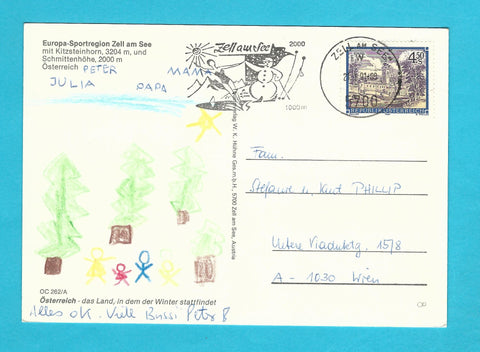 Europa-Sportregion Zell am See
mit Kitzsteinhorn, 3204 m, und
Schmittenhöhe, 2000 m
Österreich
PETER
MAMA
JULIA
PAPA
Zell am See
2000
1000 m
ZELL AM SEE
5700
4.50
REPUBLIK ÖSTERREICH
Verlag W. K. Hühne Ges.m.b.H., 5700 Zell am See, Austria
Fam.
Stefanie u. Kurt PHILLIP
Untere Viaduktg. 15/8
A - 1030 Wien
OC 262/A
Österreich - das Land, in dem der Winter stattfindet
Alles OK. Viele Bussi Peter